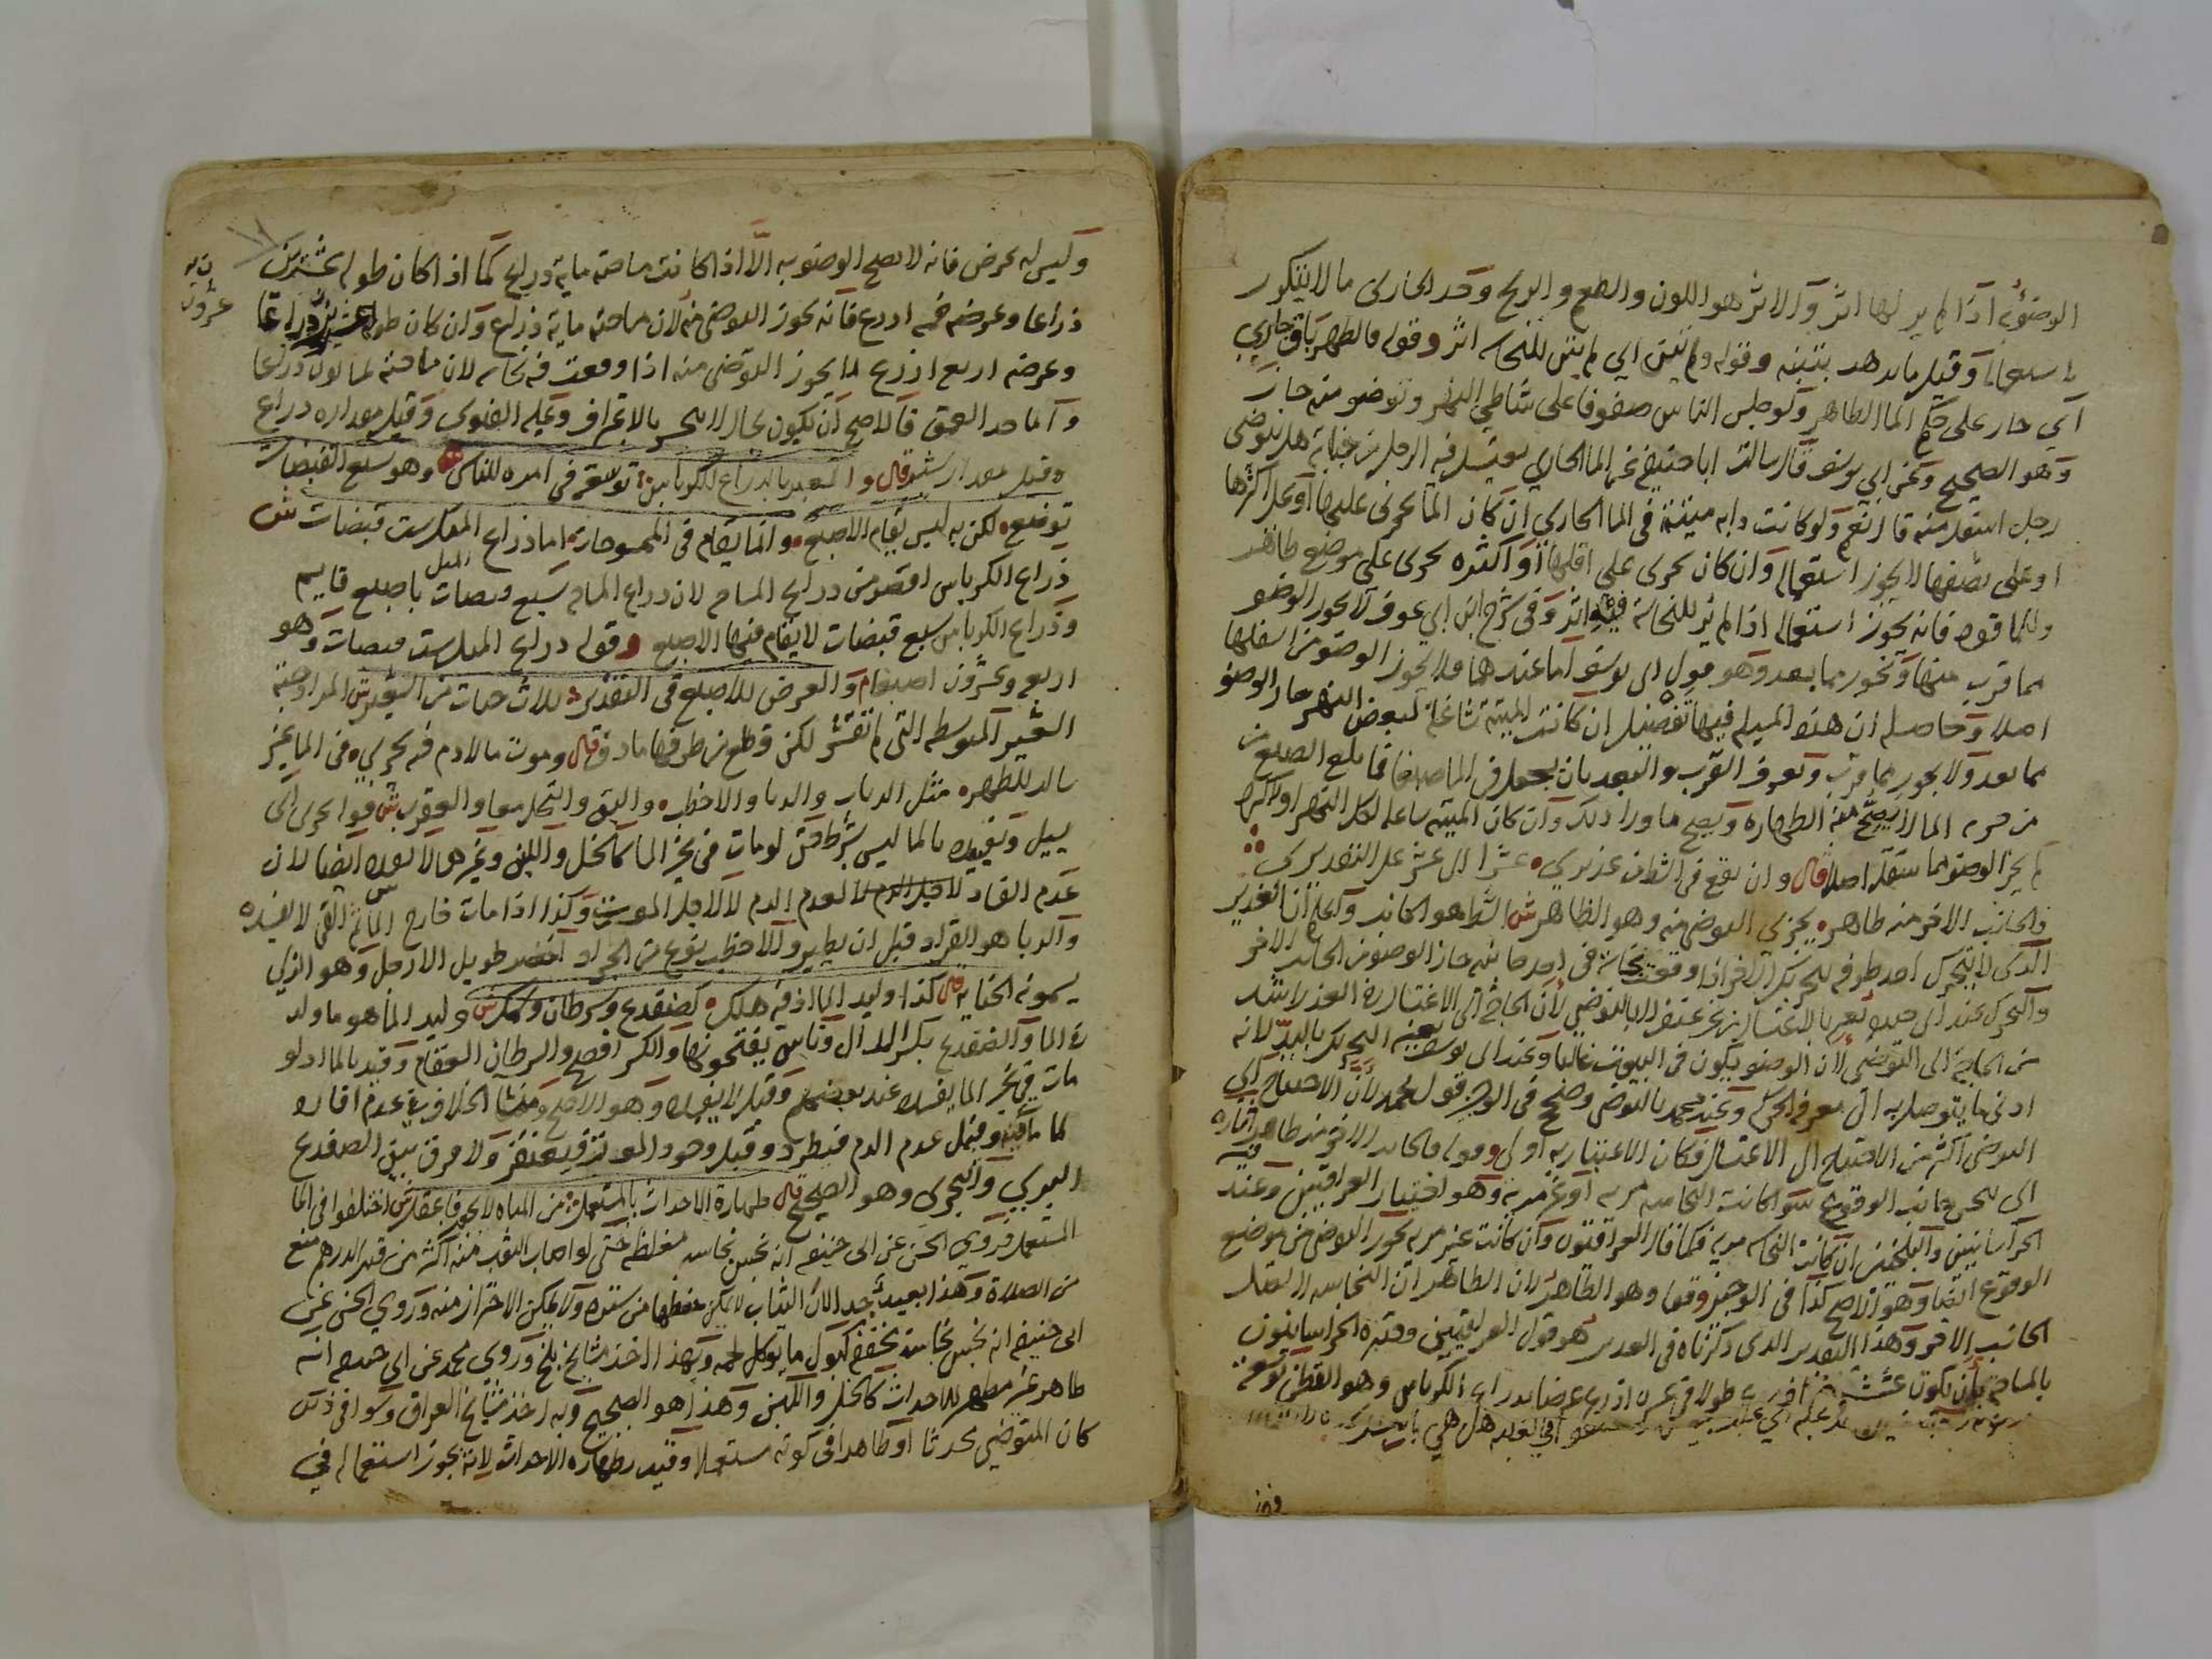 الوضؤبه اذا لم ير لها اثر والاثر هو اللون والطعم والريح وحد الجاري ما لا يتكرر
استعماله وقيل ما يذهب بتبنه وقوله ولم يتبين اي لم يتبين للنجاسه اثر وقوله فالطهر باق جاري
اي جار على حكم الما الطاهر ولو جلس الناس صفوفا على شاطي النهر وتوضو منه جاز
وهو الصحيح وعن ابي يوسف قال سالت ابا حنيفه عن الما الجاري يغتسل فيه الرجل من جنابة هل يتوضى
رجل اسفل منه قال نعم ولو كانت دابه ميتة في الما الجاري ان كان الما يجري عليها او على اكثرها
او على نصفها لا يجوز استعماله وان كان يجري على اقلها او اكثره يجري على موضع طاهر
وللما قوه فانه يجوز استعماله اذا لم ير للنجاسة فيه اثر وفي شرح ابن ابي عوف لا يجوز الوضو
مما قرب منها ويجوز مما بعد وهو قول ابى يوسف اما عندهما فلا يجوز الوضو من اسفلها
اصلا وحاصله ان هذه المسله فيها تفصيل ان كانت الميتة شاغلة لبعض النهر جاز الوضو
مما بعد ولا يجوز مما قرب ويعرف القرب والبعد بان يجعل في الما صبغا فما بلغ الصبغ من
من جرية الما لا يصح منه الطهاره ويصح ما ورا ذلك وان كان الميته شاغله لكل النهر او لاكثره
لم يجز الوضو مما سفل اصلا قال وان يقع في الشط من غدير ي عشرا ال عشر على التقدير ي
فالجانب الاخر منه طاهر يجزى التوضى منه وهو الظاهر ش الشط هو الجانب واعلم ان الغدير
الذى لا يتحرك احد طرفه بتحريك الاخر اذا وقعت نجاسة في احد جانبيه جاز الوضو من الجانب الاخر
والتحرك عند ابى حنيفه يعتبر بالاغتسال من غير عنف لا بالتوضى لان الحاجة الى الاغتسال في الغدير اشد
من الحاجة الى التوضى لان الوضو يكون في البيوت غالبا وعند ابى يوسف يعتبر التحريك باليد لانه
ادنى ما يتوصل به الى معرفة الحركة وعند محمد بالتوضى وصحح في الوجيز قول محمد لان الاحتياج الى
التوضى اكثر من الاحتياج الى الاغتسال فكان الاعتبار به اولى وقوله فالجانب الاخر منه طاهر اشاره
الى تنجس جانب الوقوع سوا كانت النجاسه مريه او غير مريه وهو اختيار العراقيين وعند
الخراسانيين والبلخيين ان كانت النجاسه مريه فكما قال العراقيون وان كانت غير مريه يجوز التوضى من موضع
الوقوع ايضا وهو الاصح كذا في الوجيز وقوله وهو الظاهر لان الظاهر ان النجاسه لا تنتقل
الجانب الاخر وهذا التقدير الذى ذكرناه في الغدير هو قول العراقيين وقدره الخراسانيون
بالمساحة بان يكون عشرة اذرع طولا في عشره اذرع عرضا بذراع الكرباس وهو القطن توسعة
وليس له عرض فانه لا يصح الوضو به الا اذا كانت مساحته ماية ذراع كما اذا كان طوله عشرين
ذراعا وعرضه خمسه اذرع فانه يجوز التوضى منه لان مساحته ماية ذراع وان كان طوله عشرين ذراعا
عشرون
وعرضه اربع اذرع لا يجوز التوضى منه اذا وقعت فيه نجاسه لان مساحته ثمانون ذراعا
واما حد العمق فالاصح ان يكون بحال لا ينحسر بالاغتراف وعليه الفتوى وقيل مقداره ذراع
وقيل مقدار شبر قال والمعتبر بالذراع للكرباس توسعة في امره للناس وهو سبع القبضات
توضيع لكن به ليس يقام الاصبع وانما يقام في الممسوحات اما ذراع المعكرست قبضات ش
ذراع الكرباس اقصر من ذراع المساح لان ذراع المساح سبع قبضات باصبع قايم
وذراع الكرباس سبع قبضات لا يقام فيها الاصبع وقوله ذراع المعلست قبضات وهو
اربع وعشرون اصبعا والعرض للاصبع في التقدير ثلاث حبات من الشعير ش المراد حبة
الشعير المتوسطه التى لم تقشر لكن قطع من طرفها ما دق قال وموت ما لا دم فيه يجري في الما غير
سالب للتطهير مثل الذباب والدبا والاخطب والبق والنحل معا والعقرب ش قوله يجري اي
يسيل وتقييده بالما ليس بشرط حتى لو مات في غير الما كالخل واللبن وغيرهما لا يفسده ايضا لان
عدم الفساد لعدم الدم لا لاجل الموت وكذا اذا مات خارج الما ثم القي لا يفسده
والدبا هو الجراد قبل ان يطير والاخطب نوع من الجراد اخضر طويل الارجل وهو الذي
يسمونه قال كذا وليد الما اذ فيه هلك كضفدع وسرطان وسمك ش وليد الما هو ما ولد
في الما والضفدع بكسر الدال وناس يفتحونها والكسر افصح والسرطان العقام وقيد بالما اذ لو
مات في غير الما يفسده عند بعضهم وقيل لا يفسده وهو الاصح ومنشا الخلاف في عدم افساده
لما مات فيه وقيل عدم الدم فيطرد وقيل وجود المعدن فيقتصر ولا فرق بين الضفدع
البري والبحرى وهو الصحيح قال طهارة الاحداث بالمستعمل من المياه لا يجوز فاعقل ش اختلفوا في الما
المستعمل فروي الحسن عن ابى حنيفه انه نجس نجاسه مغلظه حتى لو اصاب الثوب منه اكثر من قدر الدرهم منع
من الصلاة وهذا بعيد جدا لان الثياب لا يمكن حفظها من يسيره ولا يمكن الاحتراز منه وروي الحسن عن
ابى حنيفه انه نجس نجاسة مخففه كبول ما يوكل لحمه وبهذا اخذ مشايخ بلخ وروي محمد عن ابي حنيفه انه
طاهر غير مطهر للاحداث كالخل واللبن وهذا هو الصحيح وبه اخذ مشايخ العراق وسوا في ذلك
كان المتوضى محدثا او طاهرا في كونه مستعملا وقيد بطهاره الاحداث لانه يجوز استعماله في